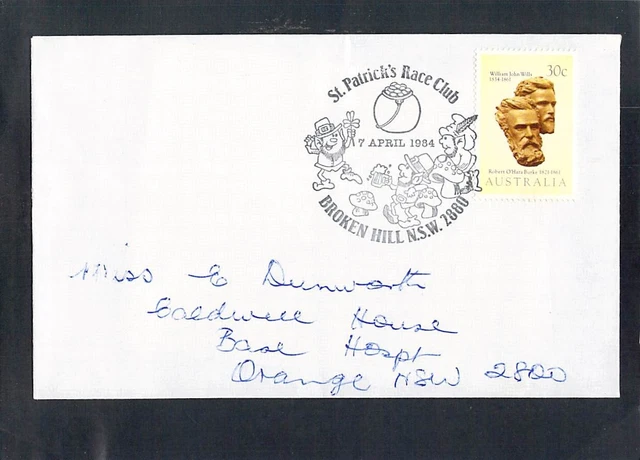 St. Patrick's Race Club
7 APRIL 1984
BROKEN HILL N.S.W. 2880
William John Wills
1834-1861
30c
Robert O'Hara Burke 1821-1861
AUSTRALIA
Miss E Dunworth
Caldwell House
Base Hospt
Orange NSW 2800